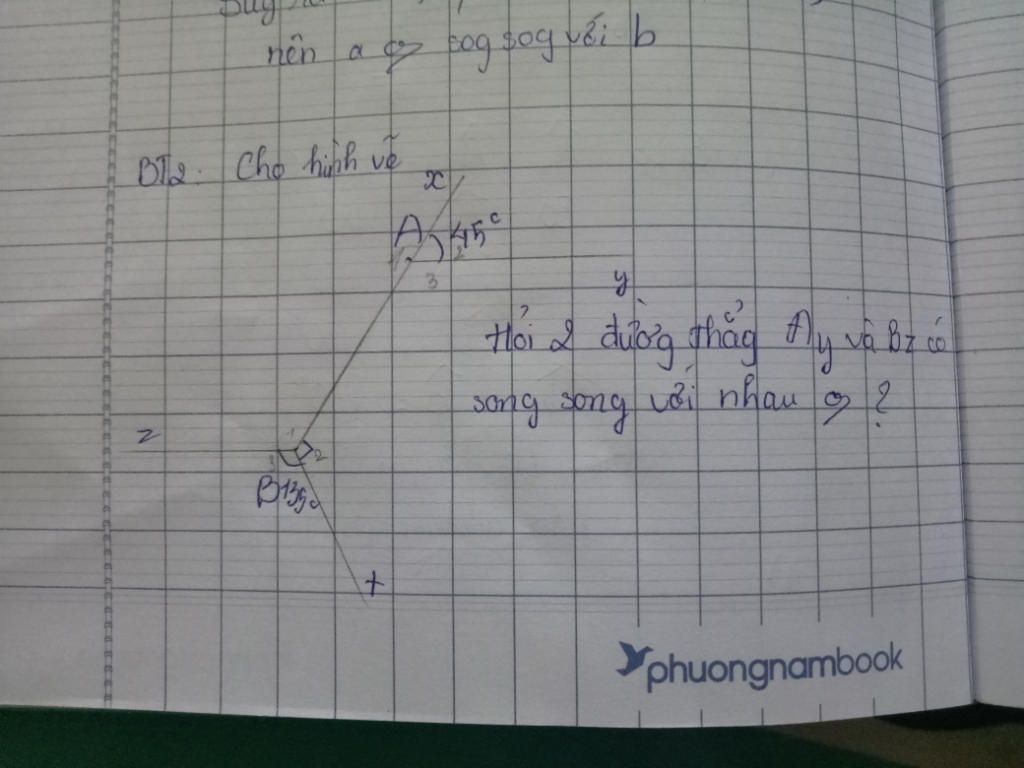 nên a ko sog sog với b
BT2. Cho hình vẽ
x
A 45°
2
3
y
Hỏi 2 đường thẳg Ay và Bz có
song song với nhau ko ?
z
1
3 2
B 135°
t
phuongnambook